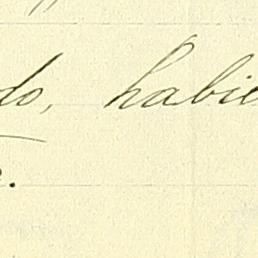 do, habie